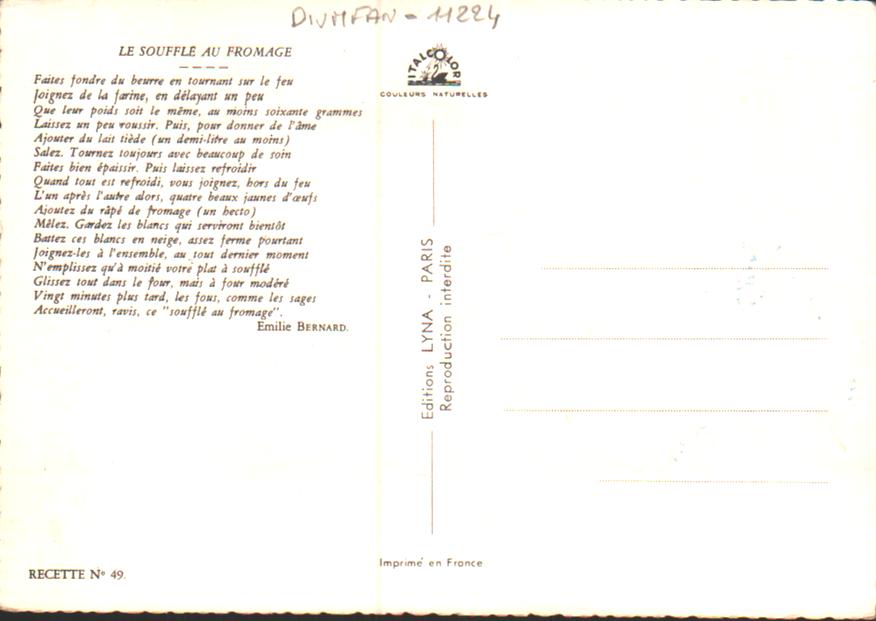 DIVMFAN - 11224
LE SOUFFLÉ AU FROMAGE
Faites fondre du beurre en tournant sur le feu
Joignez de la farine, en délayant un peu
Que leur poids soit le même, au moins soixante grammes
Laissez un peu roussir. Puis, pour donner de l'âme
Ajouter du lait tiède (un demi-litre au moins)
Salez. Tournez toujours avec beaucoup de soin
Faites bien épaissir. Puis laissez refroidir
Quand tout est refroidi, vous joignez, hors du feu
L'un après l'autre alors, quatre beaux jaunes d'œufs
Ajoutez du râpé de fromage (un hecto)
Mêlez. Gardez les blancs qui serviront bientôt
Battez ces blancs en neige, assez ferme pourtant
Joignez-les à l'ensemble, au tout dernier moment
N'emplissez qu'à moitié votre plat à soufflé
Glissez tout dans le four, mais à four modéré
Vingt minutes plus tard, les fous, comme les sages
Accueilleront, ravis, ce "soufflé au fromage".
Emilie BERNARD.
RECETTE N° 49.
ITALCOLOR
COULEURS NATURELLES
Editions LYNA - PARIS
Reproduction interdite
Imprimé en France